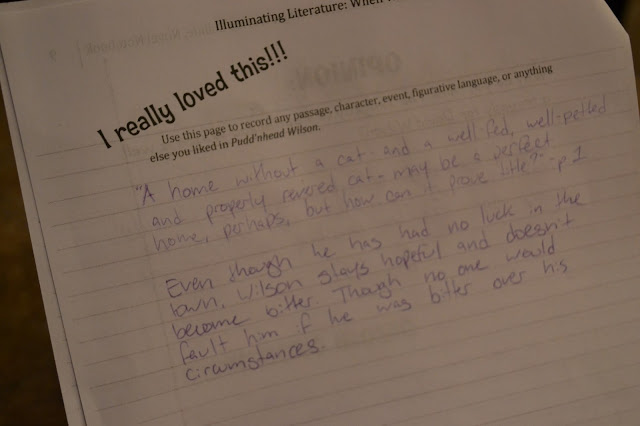 Illuminating Literature: When
I really loved this!!!
Use this page to record any passage, character, event, figurative language, or anything
else you liked in Pudd'nhead Wilson.
"A home without a cat- and a well fed, well-petted
and properly revered cat- may be a perfect
home, perhaps, but how can it prove title?"- p 1
Even though he has had no luck in the
town, Wilson stays hopeful and doesn't
become bitter. Though no one would
fault him if he was bitter over his
circumstances.
OPINION:
Novel Notebook